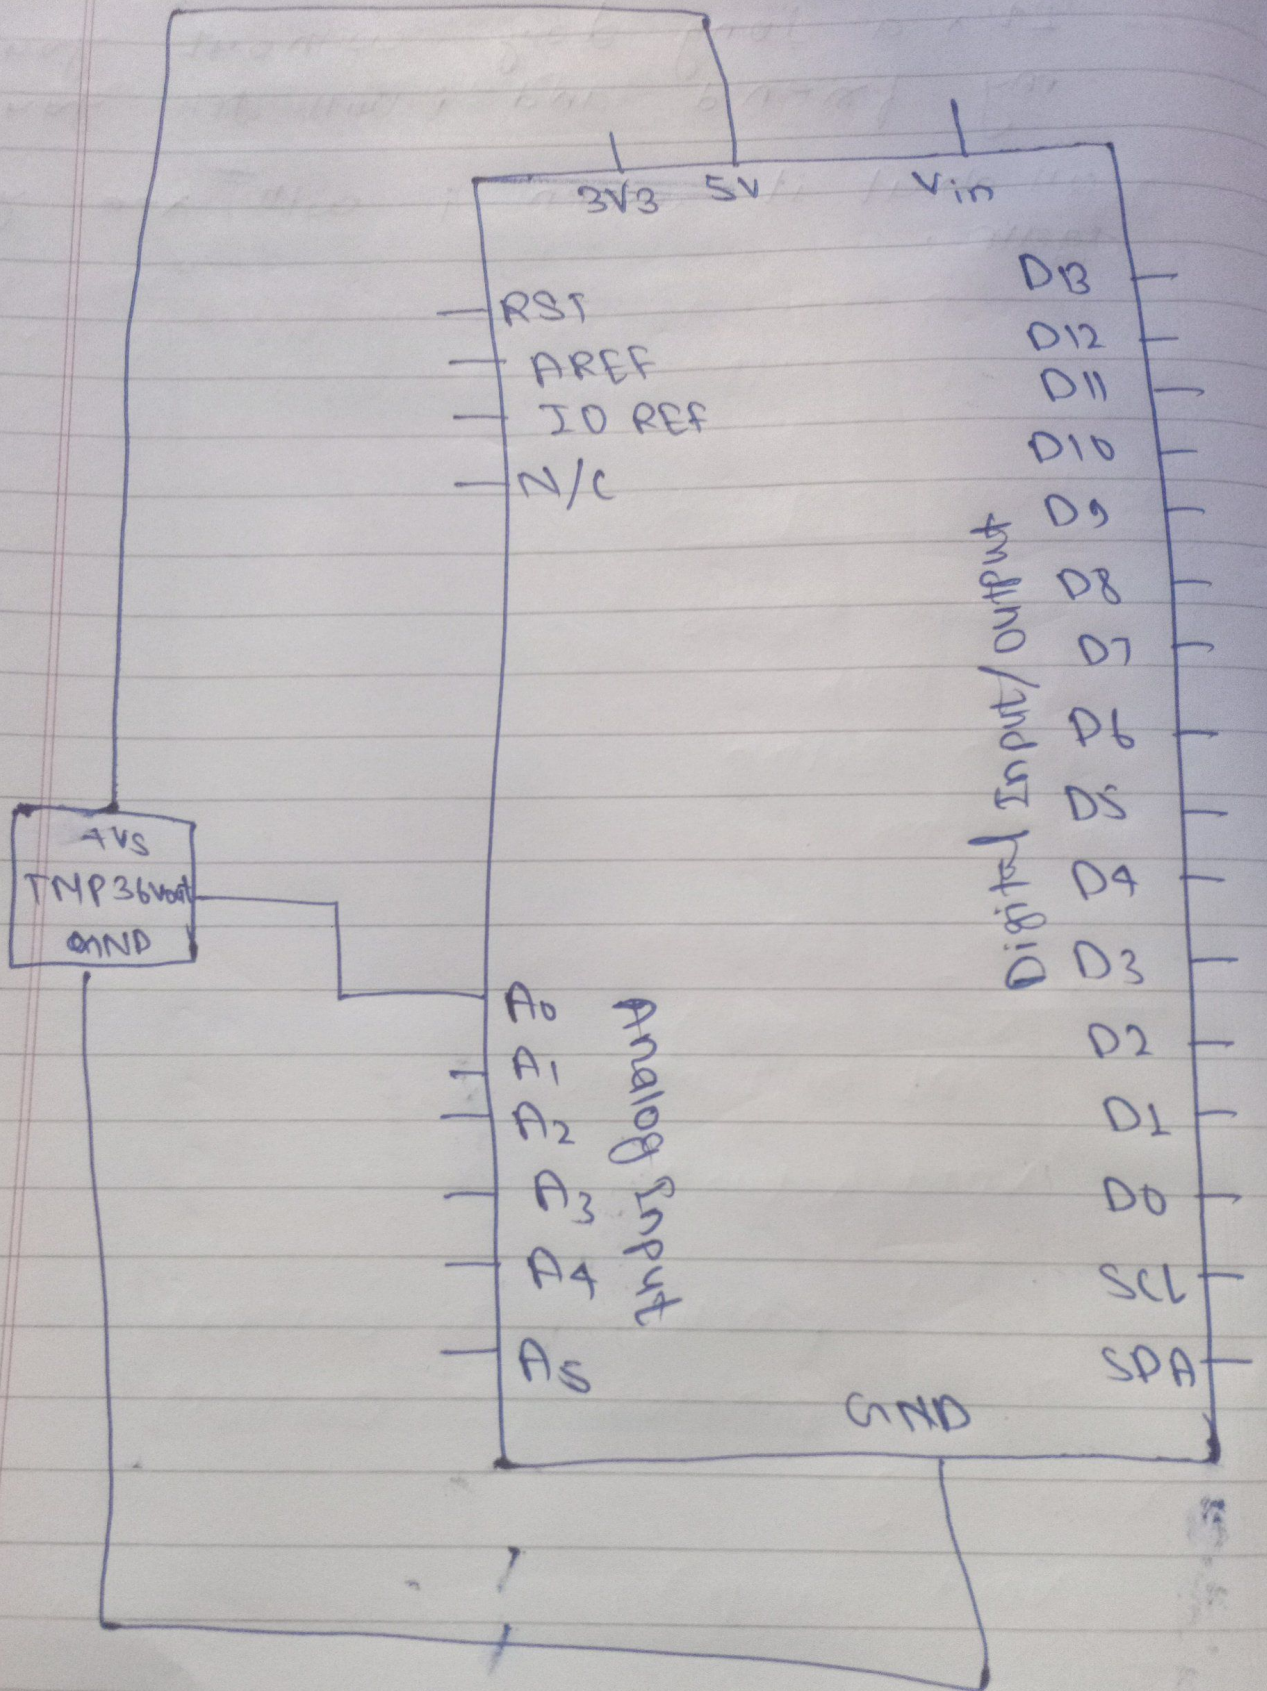 3V3 5V Vin
RST
AREF
IO REF
N/C
D13
D12
D11
D10
D9
D8
D7
D6
D5
D4
D3
D2
D1
D0
SCL
SDA
Digital Input/Output
+VS
TMP36 Vout
GND
A0
A1
A2
A3
A4
A5
Analog Input
GND